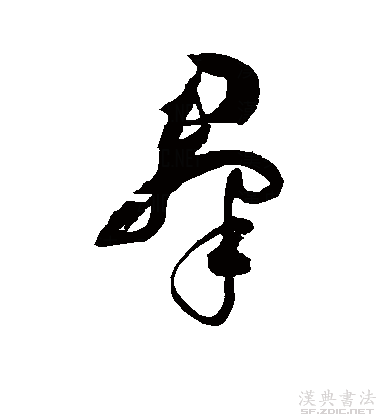 羣
漢典書法
SF.ZDIC.NET